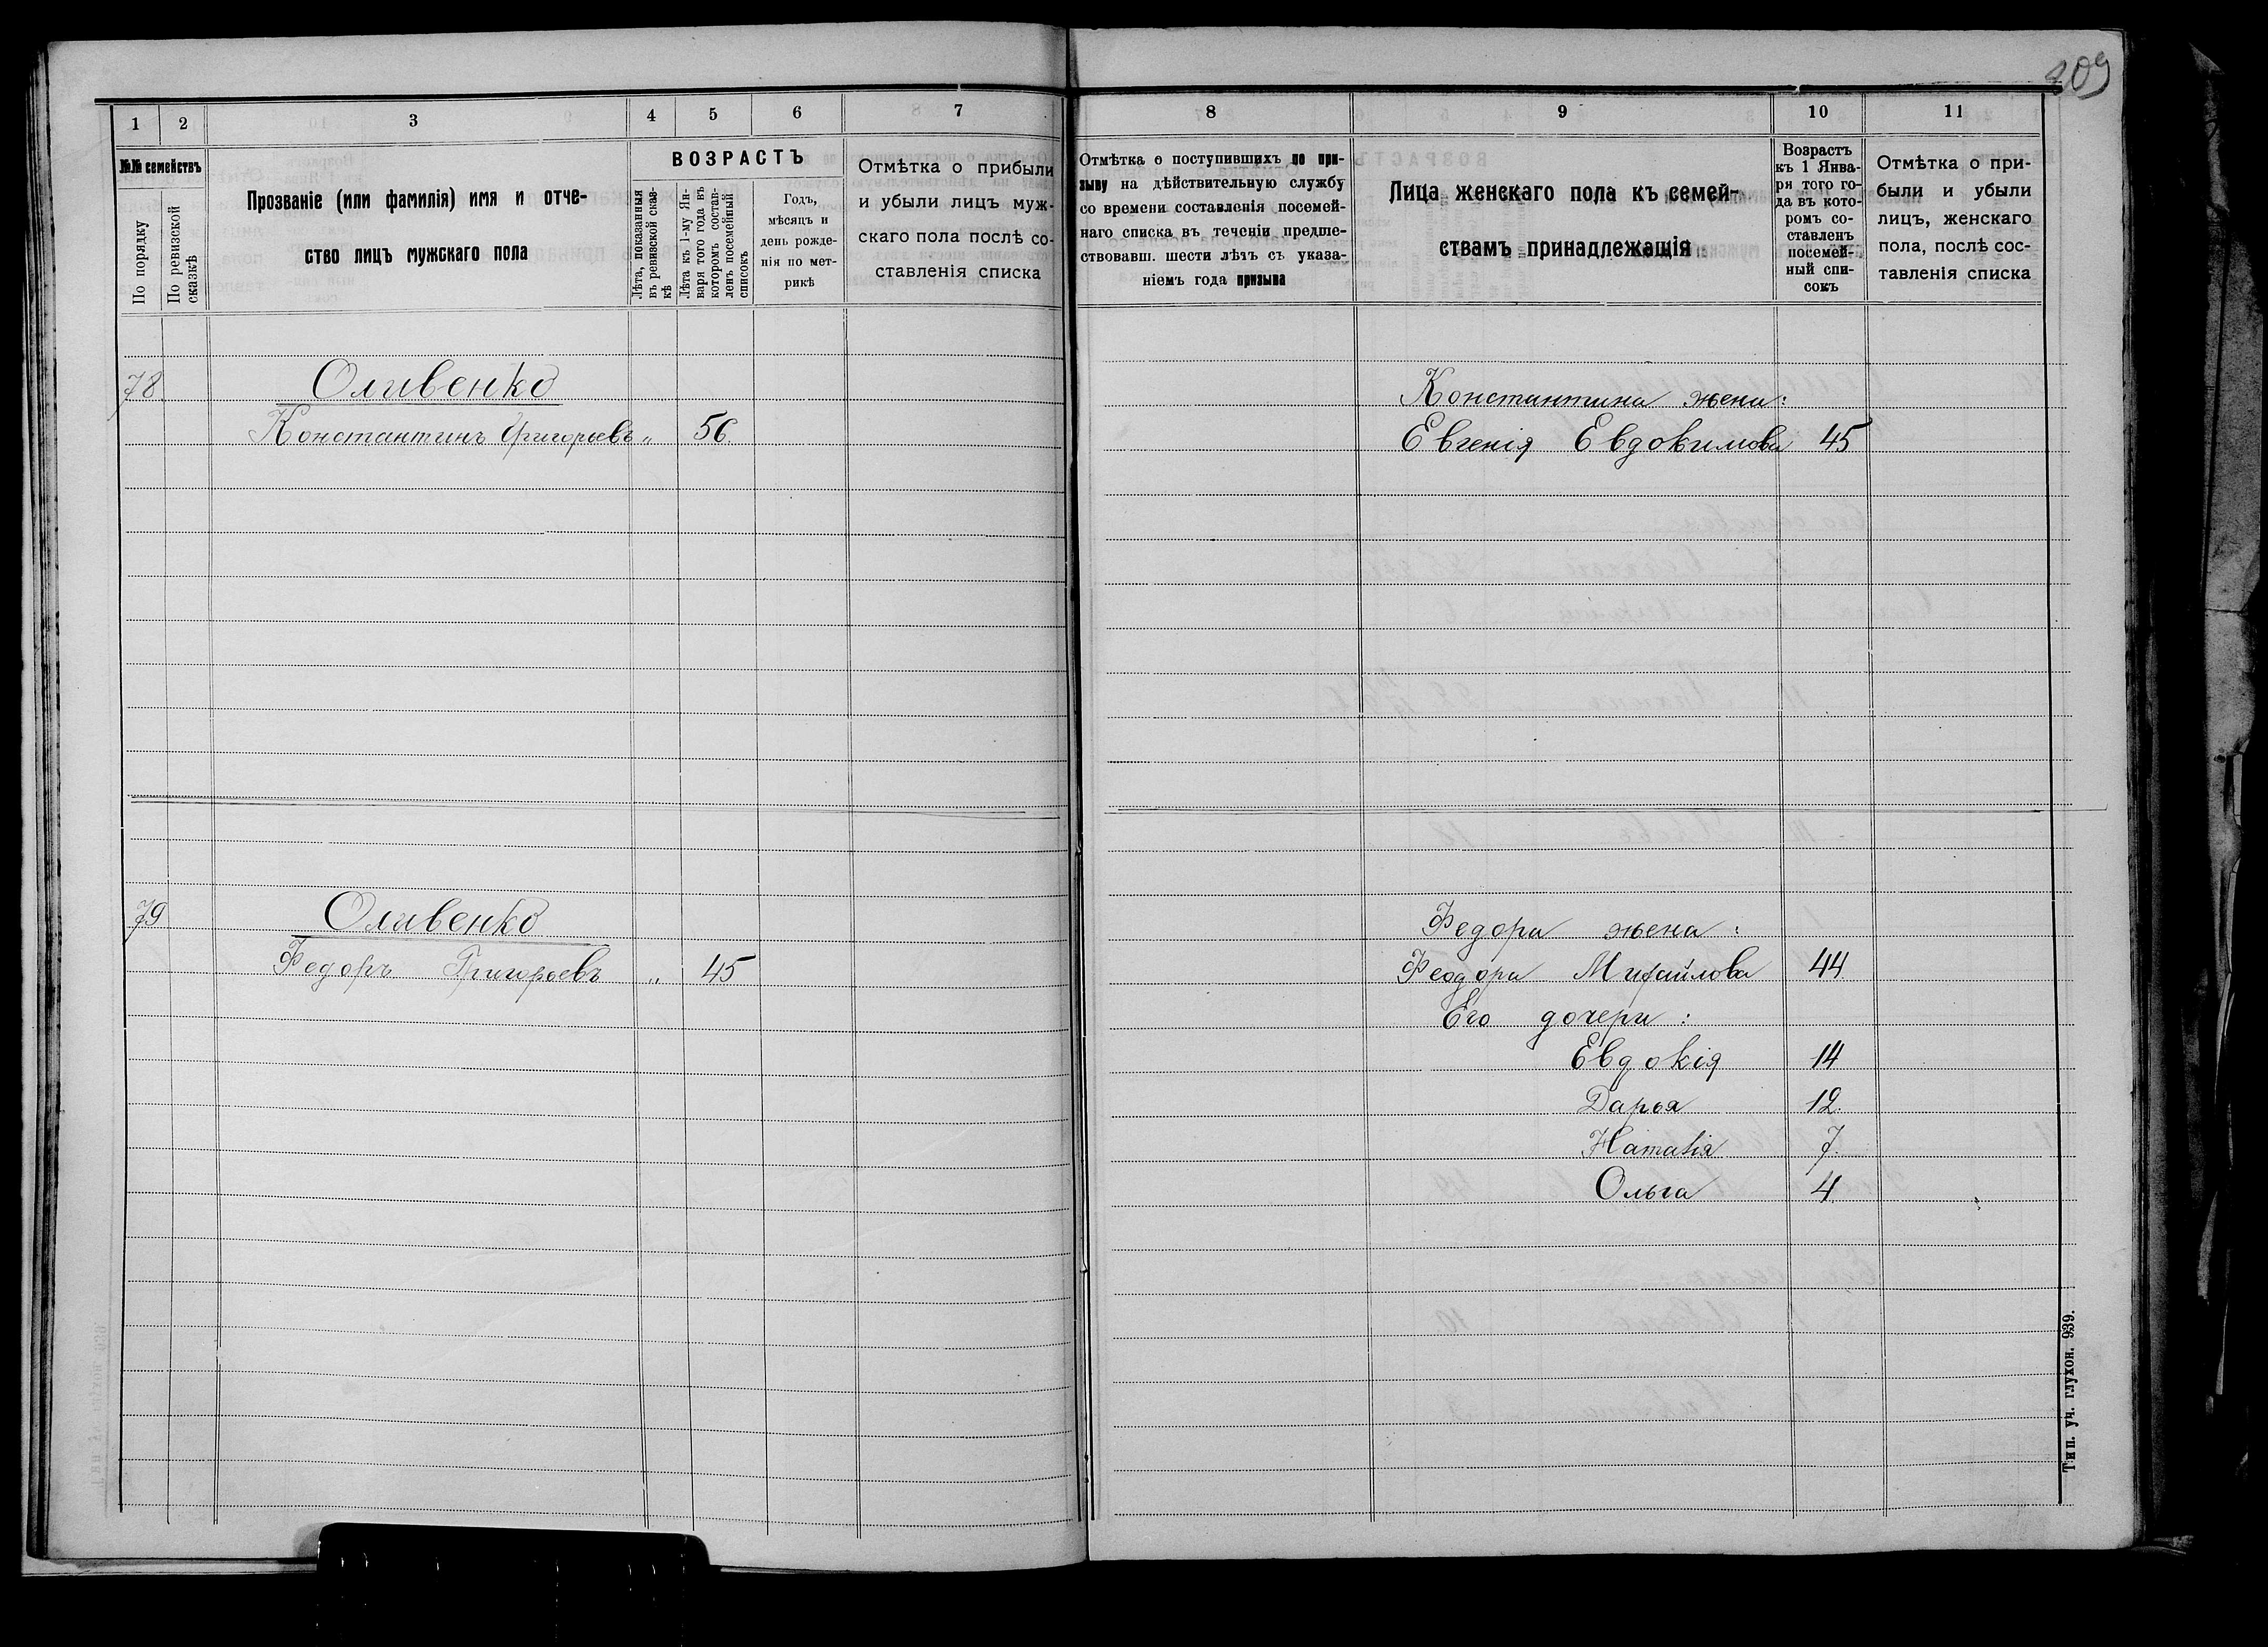 209
1 2 3 4 5 6 7
№№ семействъ
По порядку
По ревизской сказкѣ
Прозваніе (или фамилія) имя и отче-
ство лицъ мужскаго пола
ВОЗРАСТЪ
Лѣта, показанныя
въ ревизской сказ-
кѣ
Лѣта къ 1-му Ян-
варя того года въ
которомъ состав-
ленъ посемейный
списокъ
Годъ,
мѣсяцъ и
день рожде-
нія по мет-
рикѣ
Отмѣтка о прибыли
и убыли лицъ муж-
скаго пола послѣ со-
ставленія списка
78 Оливенко
Константинъ Григорьевъ „ 56
79 Оливенко
Федоръ Григорьевъ „ 45
8 9 10 11
Отмѣтка о поступившихъ по при-
зыву на дѣйствительную службу
со времени составленія посемей-
наго списка въ теченіи предше-
ствовавш. шести лѣтъ съ указа-
ніемъ года призыва
Лица женскаго пола къ семей-
ствамъ принадлежащія
Возрастъ
къ 1 Янва-
ря того го-
да въ кото-
ромъ со-
ставленъ
посемей-
ный спи-
сокъ
Отмѣтка о при-
были и убыли
лицъ, женскаго
пола, послѣ сос-
тавленія списка
Константина жена:
Евгенія Евдокимова 45
Федора жена:
Феодора Михайлова 44
Его дочери:
Евдокія 14
Дарья 12
Наталія 7
Ольга 4
Тип. уч. глухон. 939.